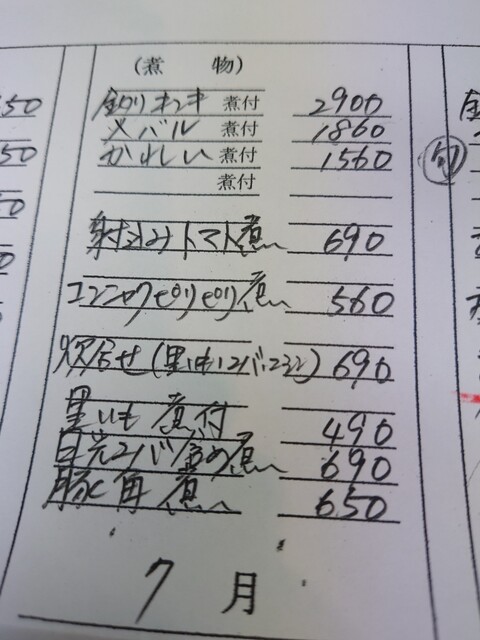 (煮　物)
釣りキンキ 煮付 2900
メバル 煮付 1860
かれい 煮付 1560
煮付
射込みトマト煮 690
コンニャクピリピリ煮 560
炊合せ(里いも・エビ・ 690
里いも 煮付 490
日光ユバ含め煮 690
豚角煮 650
7 月
句